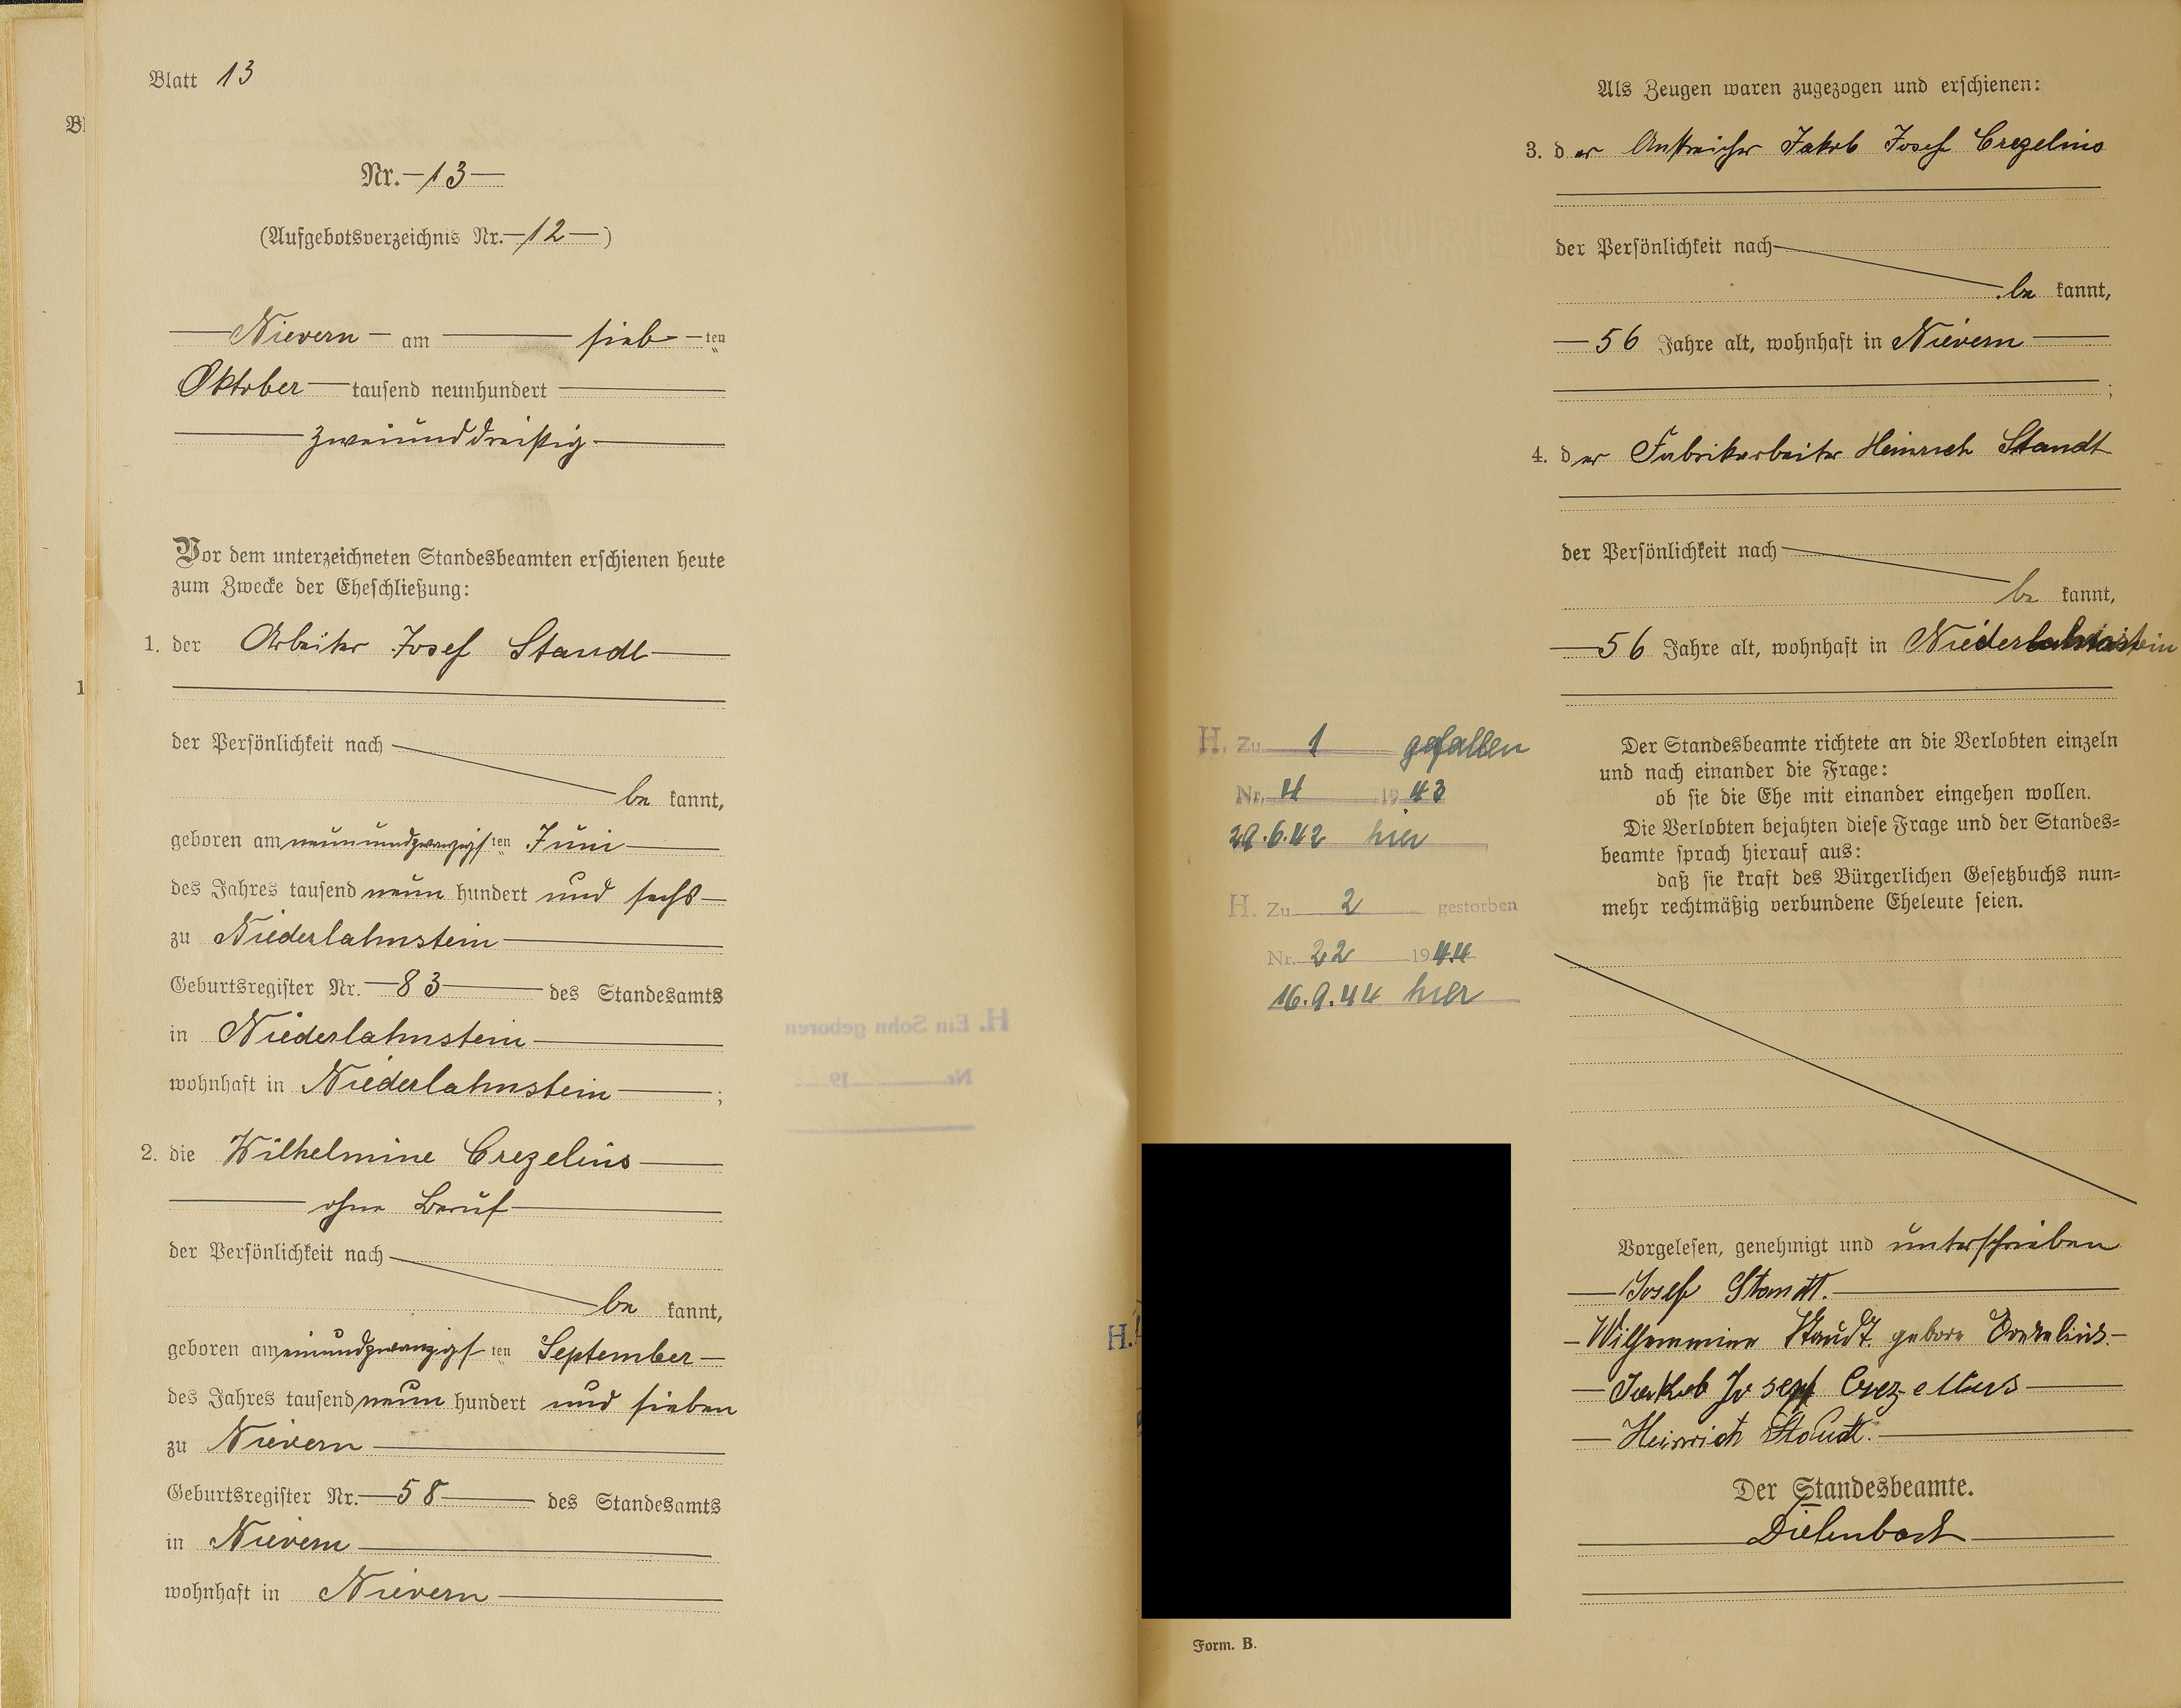 Blatt 13
Nr. 13
(Aufgebotsverzeichnis Nr. 12)
Nievern am sieb ten
Oktober tausend neunhundert
zweiunddreißig
Vor dem unterzeichneten Standesbeamten erschienen heute
zum Zwecke der Eheschließung:
1. der Arbeiter Josef Staudt
der Persönlichkeit nach
be kannt,
geboren am neunundzwanzigs ten Juni
des Jahres tausend neun hundert und sechs
zu Niederlahnstein
Geburtsregister Nr. 83 des Standesamts
in Niederlahnstein
wohnhaft in Niederlahnstein ;
2. die Wilhelmine Crezelius
ohne Beruf
der Persönlichkeit nach
be kannt,
geboren am einundzwanzigs ten September
des Jahres tausend neun hundert und sieben
zu Nievern
Geburtsregister Nr. 58 des Standesamts
in Nievern
wohnhaft in Nievern
H. Ein Sohn geboren
Nr. 19
Als Zeugen waren zugezogen und erschienen:
3. der Anstreicher Jakob Josef Crezelius
der Persönlichkeit nach
be kannt,
56 Jahre alt, wohnhaft in Nievern
;
4. der Fabrikarbeiter Heinrich Staudt
der Persönlichkeit nach
be kannt,
56 Jahre alt, wohnhaft in Niederlahnstein
H. Zu 1 gefallen
Nr. 4 1943
29.6.42 hier
H. Zu 2 gestorben
Nr. 22 1944
16.9.44 hier
H.
Der Standesbeamte richtete an die Verlobten einzeln
und nach einander die Frage:
ob sie die Ehe mit einander eingehen wollen.
Die Verlobten bejahten diese Frage und der Standes-
beamte sprach hierauf aus:
daß sie kraft des Bürgerlichen Gesetzbuchs nun-
mehr rechtmäßig verbundene Eheleute seien.
Vorgelesen, genehmigt und unterschrieben
Josef Staudt.
Wilhemmine Staudt gebore Crezelius.
Jakob Josepf Crezelius
Heinrich Staudt.
Der Standesbeamte.
Form. B.